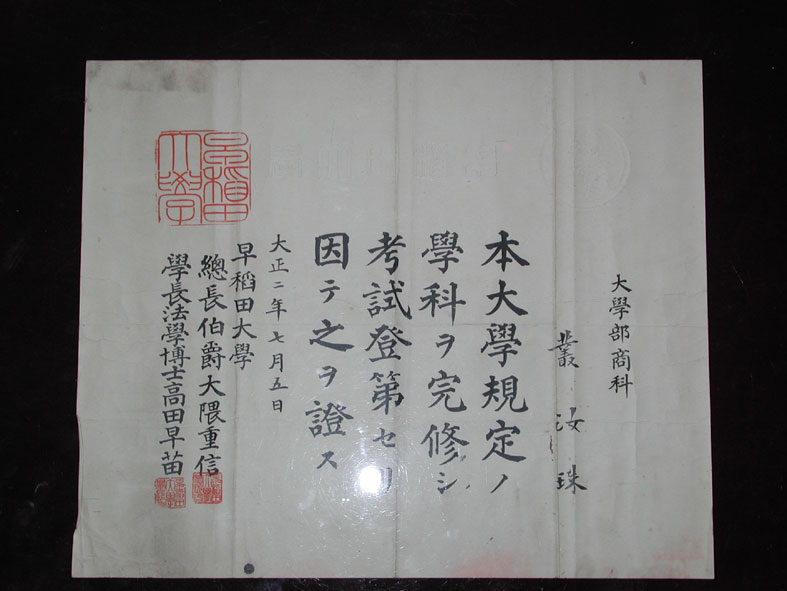 大學部商科
叢汝珠
本大學規定ノ
學科ヲ完修シ
考試登第セリ
因テ之ヲ證ス
大正二年七月五日
早稻田大學
總長伯爵大隈重信
學長法學博士高田早苗
早稲田
大學